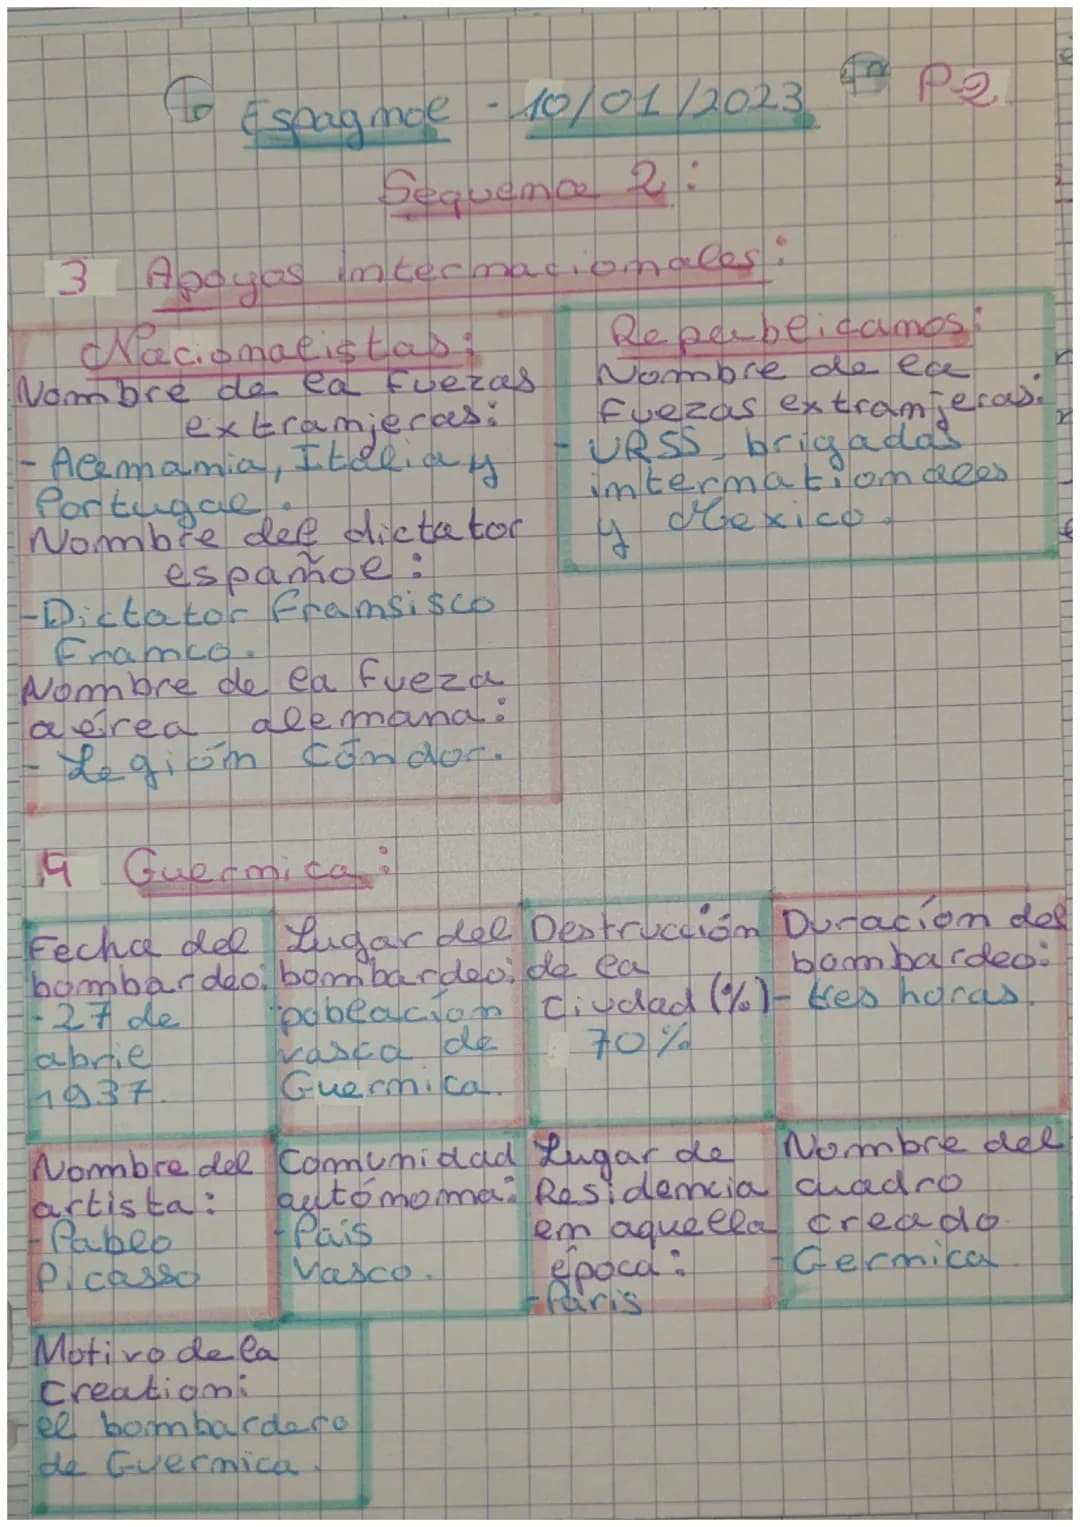 Espagnol - 10/01/2023 P-2
Sequence 2:
3 Apoyos internacionales:
Nacionalistas:
Nombre de la fuezas
extranjeras:
- Alemania, Italia y
Portugal.
Nombre del dictator
español:
- Dictator Fransisco
Franco.
Nombre de la fueza
aérea alemana:
- Legión Cóndor.
Republicanos:
Nombre de la
fuezas extranjeras:
- URSS, brigadas
internationales
y Mexico.
4 Guernica:
Fecha del
bombardeo:
- 27 de
abril
1937.
Lugar del
bombardeo:
población
vasca de
Guernica.
Destrucción
de la
Ciudad (%)
70%
Duracíon del
bombardeo:
- tres horas.
Nombre del
artista:
- Pablo
Picasso
Comunidad
autónoma:
- Pais
Vasco.
Lugar de
Residencia
en aquella
época:
- Paris
Nombre del
cuadro
creado
- Gernica
Motivo de la
creation:
el bombardero
de Guernica.